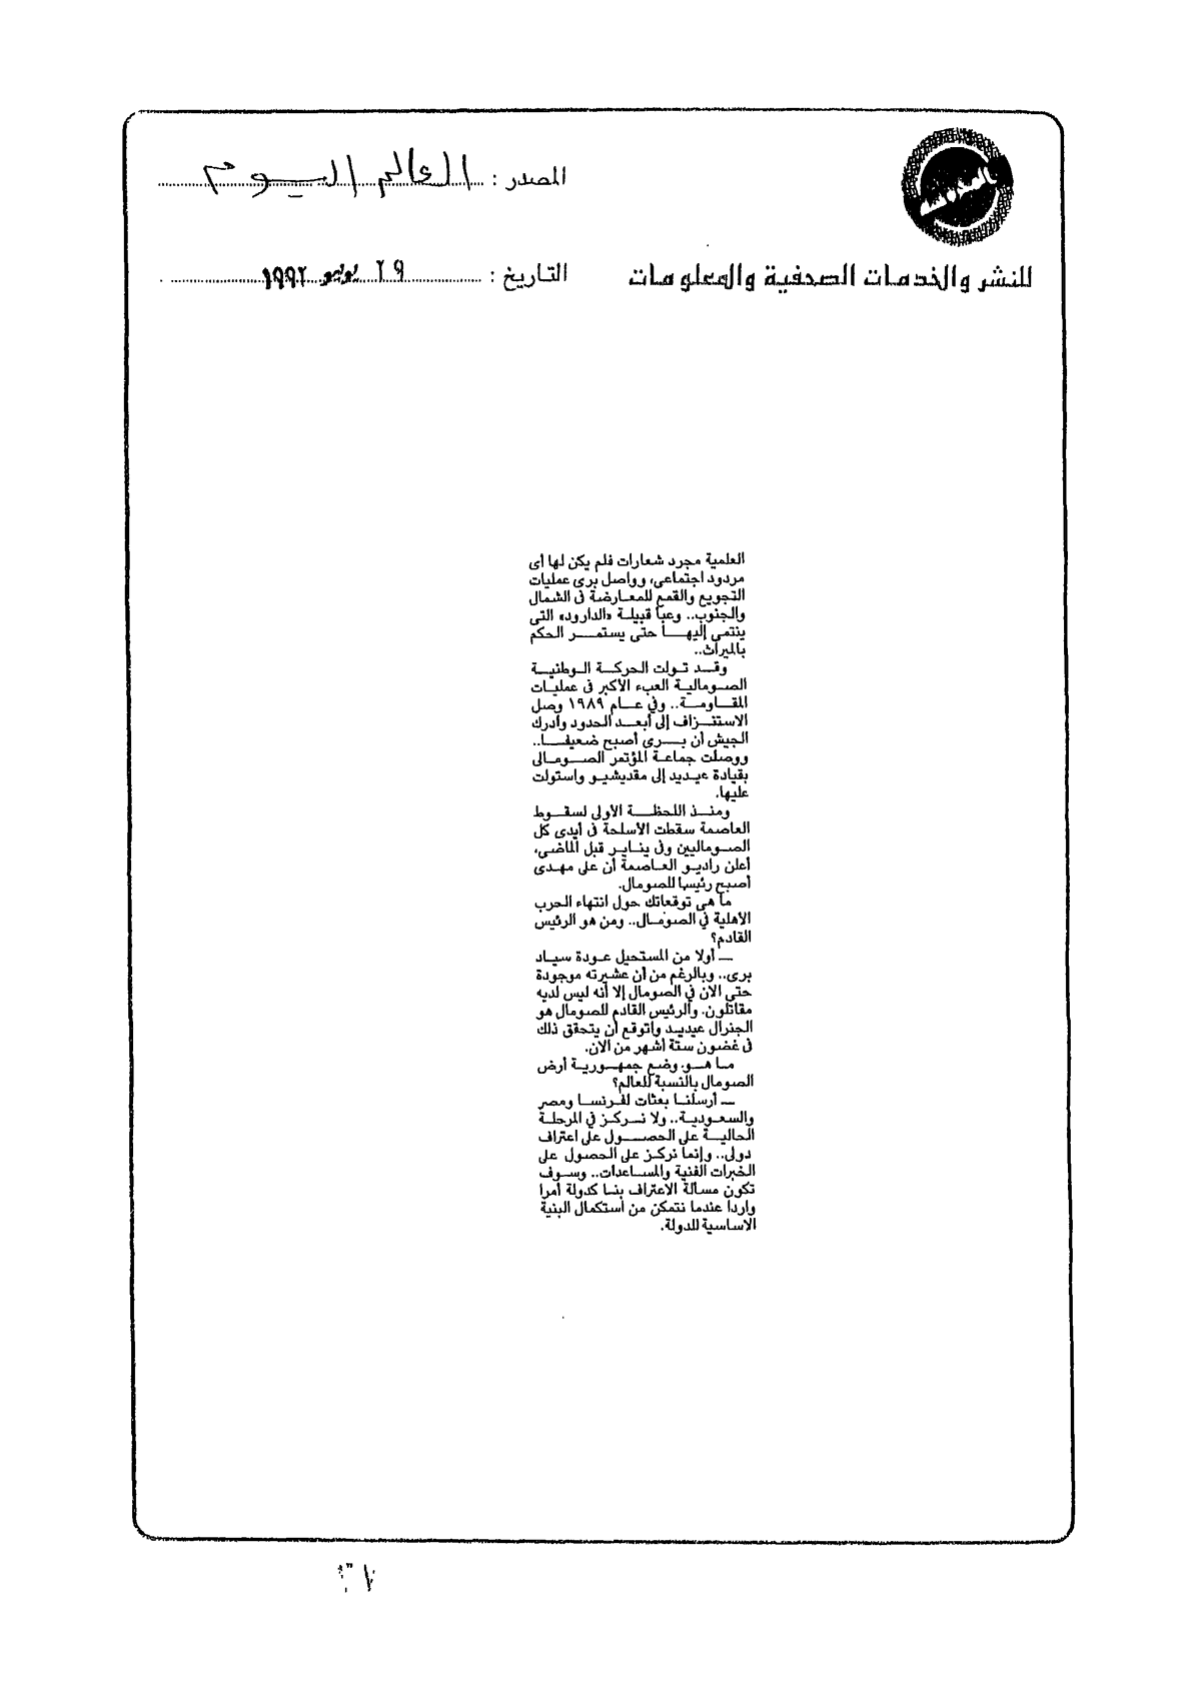 المصدر : العالم اليوم
للنشر والخدمات الصحفية والمعلومات
التاريخ : ٢٩ يونيو ١٩٩٢
العلمية مجرد شعارات فلم يكن لها أى
مردود اجتماعى، وواصل برى عمليات
التجويع والقمع للمعارضة فى الشمال
والجنوب.. وعبأ قبيلة «الدارود» التى
ينتمى إليها حتى يستمر الحكم
بالميراث..
وقد تولت الحركة الوطنية
الصومالية العبء الأكبر فى عمليات
المقاومة.. وفى عام ١٩٨٩ وصل
الاستنزاف إلى أبعد الحدود وأدرك
الجيش أن برى أصبح ضعيفا..
ووصلت جماعة المؤتمر الصومالى
بقيادة عيديد إلى مقديشيو واستولت
عليها.
ومنذ اللحظة الأولى لسقوط
العاصمة سقطت الأسلحة فى أيدى كل
الصوماليين وفى يناير قبل الماضى،
أعلن راديو العاصمة أن على مهدى
أصبح رئيسا للصومال.
ما هى توقعاتك حول انتهاء الحرب
الأهلية في الصومال.. ومن هو الرئيس
القادم؟
ــ أولا من المستحيل عودة سياد
برى.. وبالرغم من أن عشيرته موجودة
حتى الان في الصومال إلا أنه ليس لديه
مقاتلون. والرئيس القادم للصومال هو
الجنرال عيديد واتوقع أن يتحقق ذلك
فى غضون ستة أشهر من الان.
ما هو وضع جمهورية أرض
الصومال بالنسبة للعالم؟
ــ أرسلنا بعثات لفرنسا ومصر
والسعودية.. ولا نركز في المرحلة
الحالية على الحصول على اعتراف
دولى.. وإنما نركز على الحصول على
الخبرات الفنية والمساعدات.. وسوف
تكون مسألة الاعتراف بنا كدولة أمرا
واردا عندما نتمكن من استكمال البنية
الاساسية للدولة.